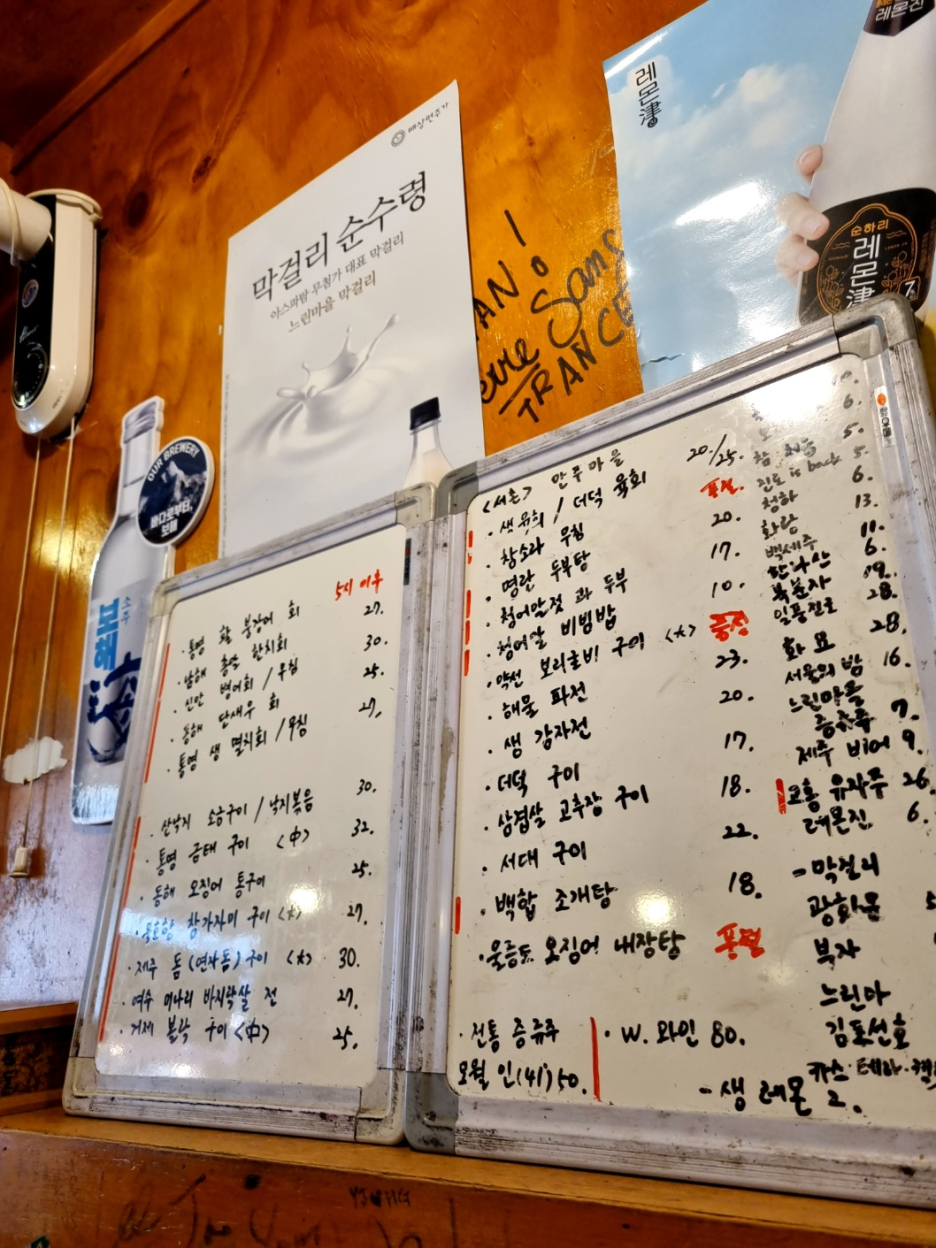 배상면주가
막걸리 순수령
아스파탐 무첨가 대표 막걸리
느린마을 막걸리
레몬津
레몬진
순하리
레몬津
7
AN!
Sans
TRANCE
OUR BREWERY
바다로부터,
보해
보해
소주
5시 이후
· 통영 활 붕장어 회 27.
· 남해 흥달 한치회 30.
· 신안 병어회 / 무침 25.
· 동해 단새우 회 27.
· 통영 생 멸치회 / 무침
· 산낙지 소금구이 / 낙지볶음 30.
· 통영 금태 구이 <中> 32.
· 동해 오징어 통구이 25.
참가자미 구이 <大> 27.
· 제주 돔 (연자돔) 구이 <大> 30.
· 여수 미나리 바지락살 전 27.
· 거제 볼락 구이 <中> 25.
<서촌> 안주마을
· 생육회 / 더덕 육회 20/25.
· 참소라 무침 품절.
· 명란 두부탕 20.
· 청어알젓 과 두부 17.
· 청어알 비빔밥 10.
· 약선 보리굴비 구이 <大> 품절
· 해물 파전 23.
· 생 감자전 20.
· 더덕 구이 17.
· 삼겹살 고추장 구이 18.
· 서대 구이 22.
· 백합 조개탕 18.
· 울릉도 오징어 내장탕 품절
· 전통 증류주
오월 인(41) 50.
· W. 와인 80.
6.
참 5.
진로 is back 5.
청하 6.
화랑 13.
백세주 11.
한라산 6.
복분자 19.
일품진로 28.
화요 28.
서울의 밤 16.
느린마을
증류주 7.
제주 비어 9.
고흥 유자주 26.
레몬진 6.
- 막걸리
광화문
부자
느린마
김포선호
카스·테라·켈
- 생 레몬 2.